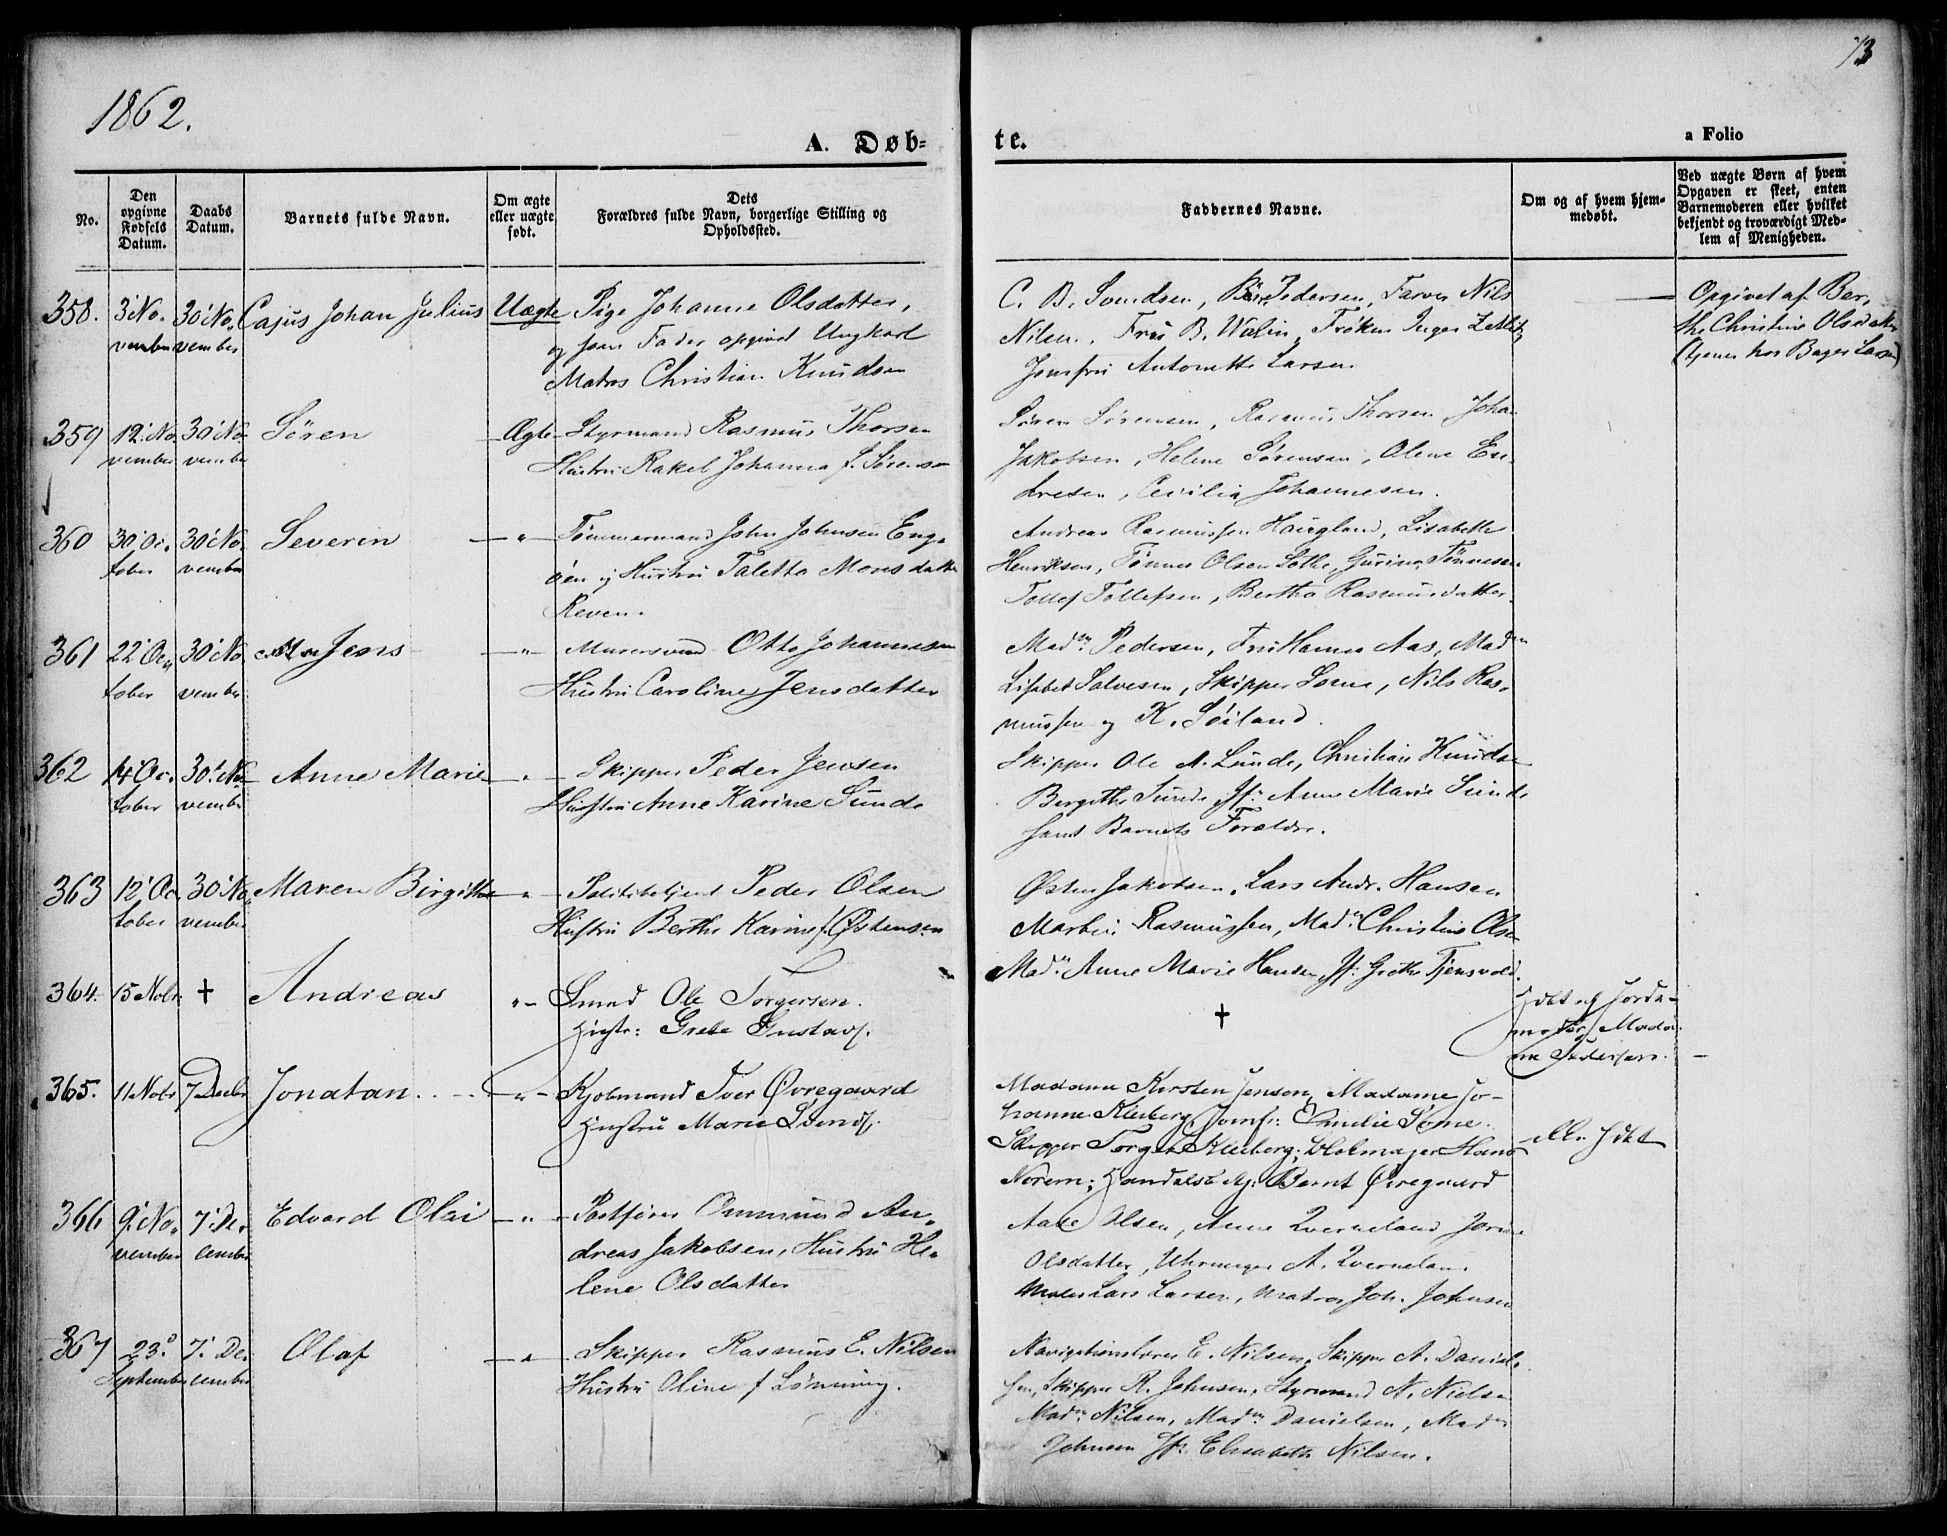 1862.
73
A. Døb-
te.
a Folio
No.
Den
opgivne
Fødsels
Datum.
Daabs
Datum.
Barnets fulde Navn.
Om ægte
eller uægte
født.
Dets
Forældres fulde Navn, borgerlige Stilling og
Opholdssted.
Faddernes Navne.
Om og af hvem hjem-
medøbt.
Ved uægte Børn af hvem
Opgaven er skeet, enten
Barnemoderen eller hvilket
bekjendt og troværdigt Med-
lem af Menigheden.
358. 3' No- 30' No- Cajus Johan Julius Uægte Pige Johanne Olsdatter,
vember vember og som Fader opgivet Ungkarl
Matros Christian Knudsen
C. B. Svendsen, Pedersen, Farver Nils
Nilsen, Fru B. Walin, Frøken Inger Zetlitz
Jomfru Antonette Larsen.
Opgivet af Ber-
the Christine Olsdatter
(tjener hos Bager Larsen)
359 12' No- 30' No- Søren Ægte Styrmand Rasmus Thorsen
vember vember Hustru Rakel Johanna f. Sørensen
Søren Sørensen, Rasmus Thorsen Johan
Jakobsen, Helene Sørensen, Olene En-
dresen, Cecilia Johannesen.
360 30' Oc- 30' No- Severin — " — Tømmermand John Johnsen Eng-
tober vember øen og Hustru Taletta Monsdatter
Reven.
Andreas Rasmussen Haugland, Lisabeth
Henriksen, Tønnes Olsen Lothe, Gurine Tønnesen
Tollef Tollefsen, Bertha Rasmusdatter.
361 22' Oc- 30' No- Jens — " — Murersvend Otto Johannesen
tober vember Hustru Caroline Jensdatter
Madm Pedersen, Fru Hanna Aas, Madm
Lisabet Salvesen, Skipper Some, Nils Ras-
mussen og K. Søiland.
362 14' Oc- 30' No- Anne Marie — " — Skipper Peder Jensen
tober vember Hustru Anne Karine Sunde
Skipper Ole A. Lunde, Christian Knudsen
Bergithe Sunde, Jfr. Anne Marie Sunde
samt Barnets Forældre.
363 12' Oc- 30' No- Maren Birgitte — " — Politibetjent Peder Olsen
tober vember Hustru Berthe Karine f. Østensen
Østen Jakobsen, Lars Andr. Hansen
Martin Rasmussen, Madm Christine Olsen
Madm Anne Marie Hansen, Jf: Grethe Tjensvold.
364. 15 Nobr † Andreas " — Smed Ole Torgersen.
Hustr: Grete Gustavs.
†
Hdbt af Jorde-
moder Mada-
me Pedersen. —
365. 11 Nobr 7 Decbr Jonatan. . . — " — Kjøbmand Iver Øvregaard
Hustru Marie Svends.
Madame Kirsten Jensen, Madame Jo-
hanne Kleiberg, Jomfr: Emilie Some.
Skipper Torger Kleiberg; Blokmager Hans
Norem; Handelsb. Bernt Øvregaard
Hdbt
366 9' No- 7' De- Edvard Olai — " — Postfører Ommund An-
vember cember dreas Jakobsen, Hustru He-
lene Olsdatter
Aase Olsen, Anne Qverneland Jorine
Olsdatter, Uhrmager A. Qverneland.
Maler Lars Larsen, Matros Joh. Johnsen
367 23' 7' De- Olaf — " — Skipper Rasmus E. Nilsen
September cember Hustru Oline f Lønning.
Navigationslærer E. Nilsen, Skipper A. Daniel-
sen, Skipper R. Johnsen, Styrmand N. Nielsen
Madm Nilsen, Madm Danielsen, Madm
Johnsen Jfr. Elisabeth Nilsen.